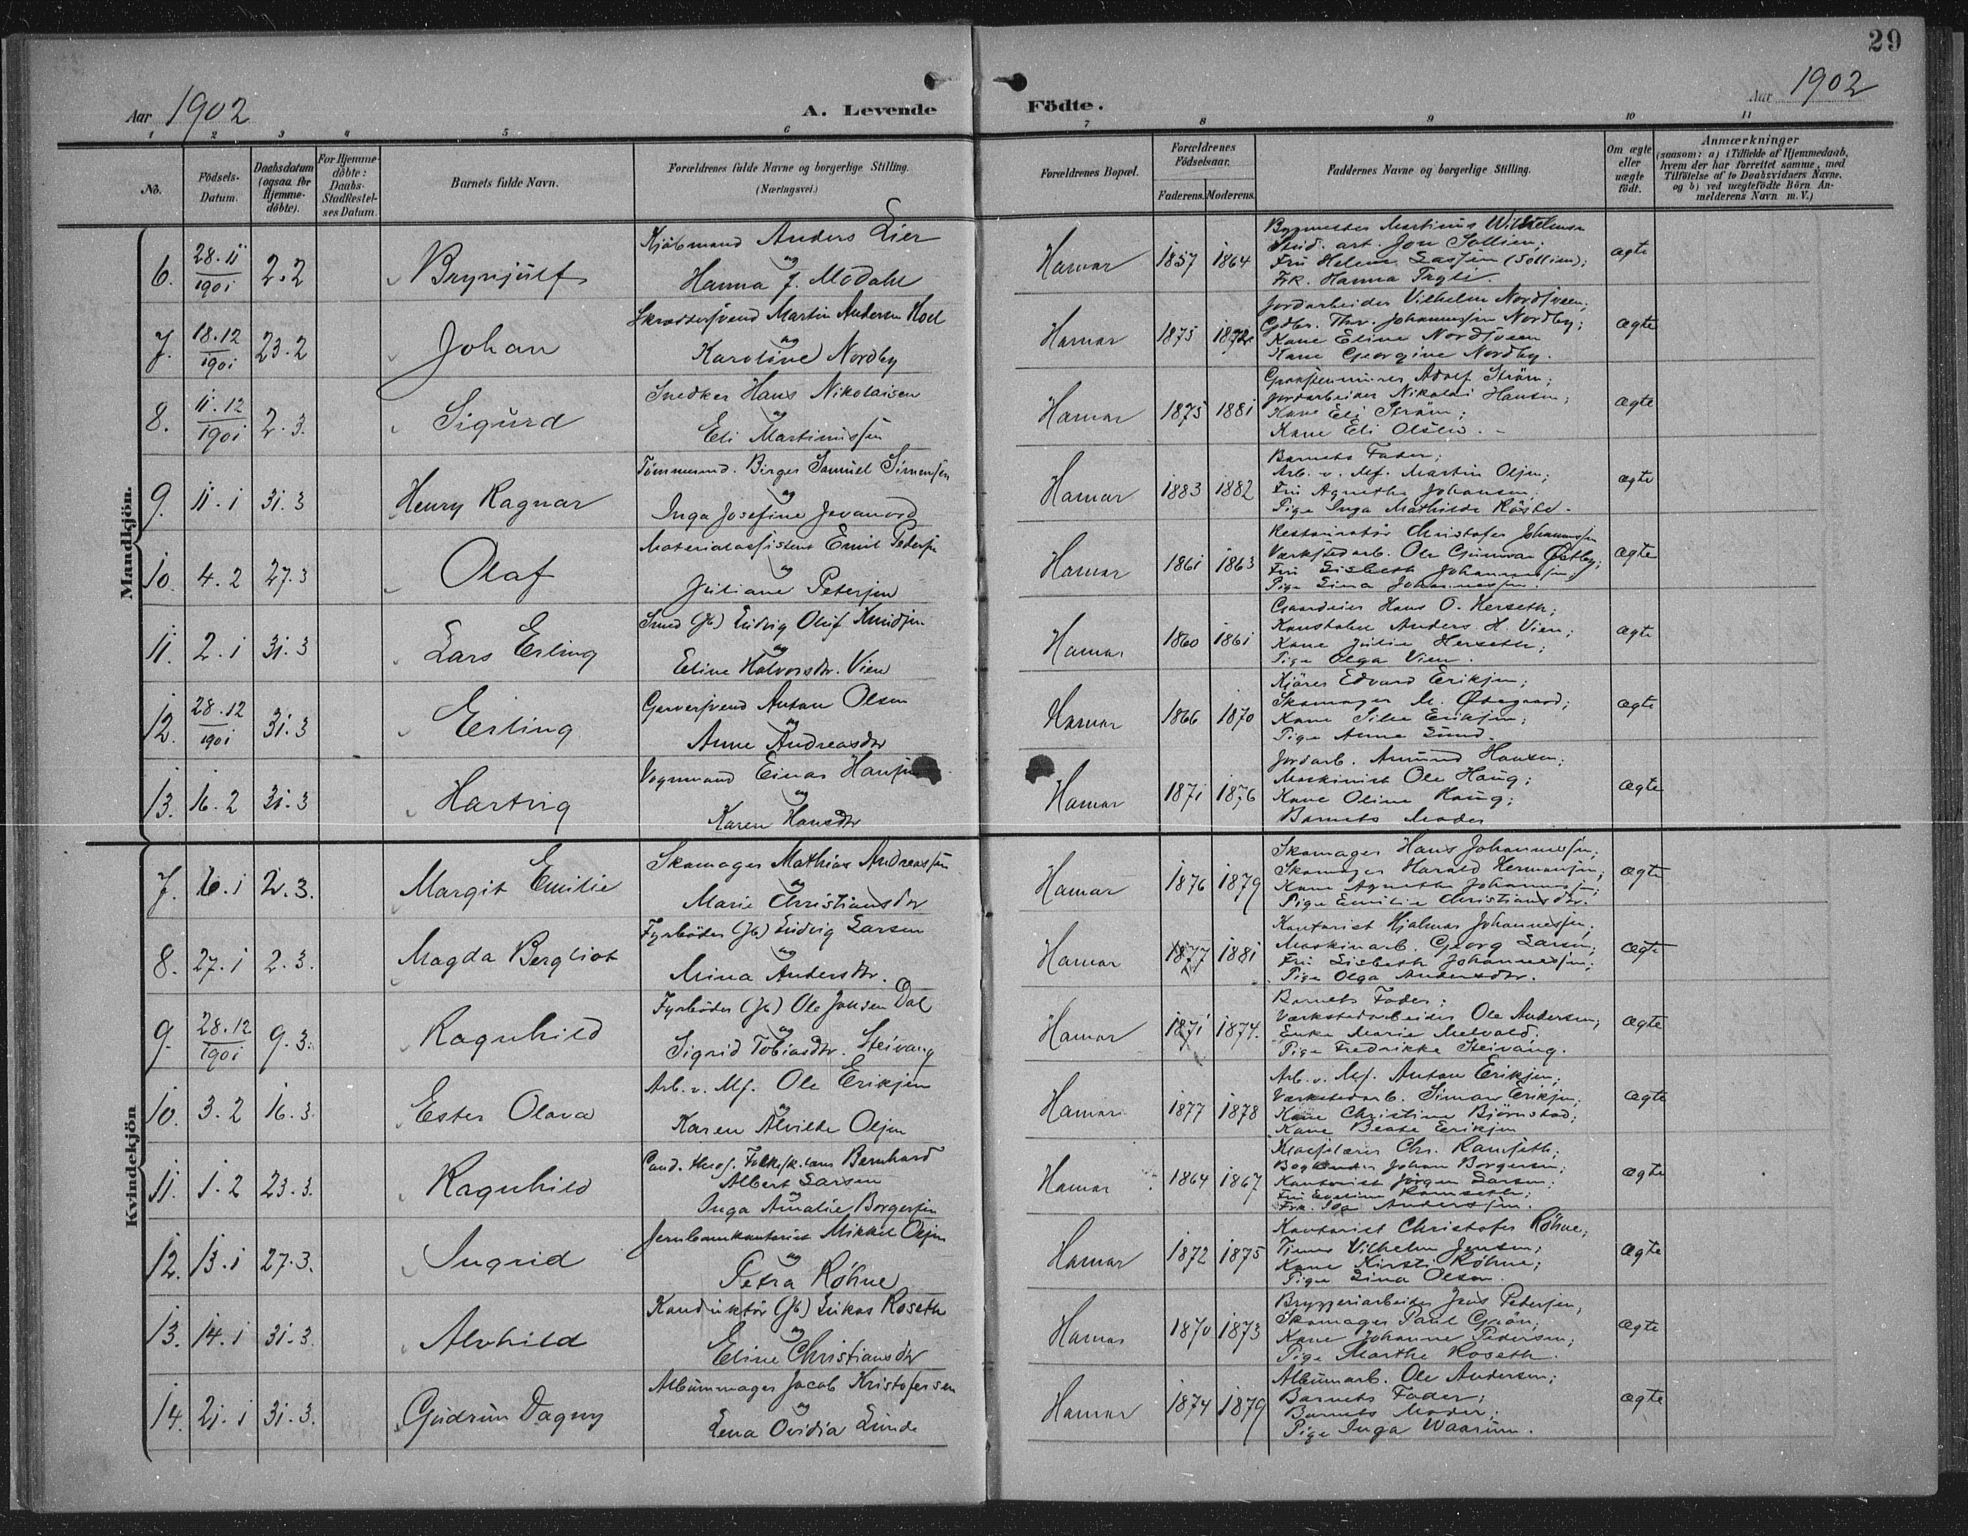 29
Aar 1902
A. Levende
Födte.
Aar 1902
1 2 3 4 5 6 7 8 9 10 11
No.
Födsels-Datum.
Daabsdatum (ogsaa for Hjemme-döbte).
For Hjemme-döbte: Daabs-Stadfæstel-ses Datum.
Barnets fulde Navn.
Forældrenes fulde Navne og borgerlige Stilling.
(Næringsvei.)
Forældrenes Bopæl.
Forældrenes Födselsaar.
Faderens. Moderens.
Faddernes Navne og borgerlige Stilling.
Om ægte eller uægte födt.
Anmærkninger
(saasom: a) i Tilfælde af Hjemmedaab, hvem der har forrettet samme, med Tilföielse af to Daabsvidners Navne, og b) ved uægtefödte Börn An-melderens Navn m. V.)
Mandkjön.
6. 28.11 1901 2.2 Brynjulf
Kjøbmand Anders Lier
og
Hanna J. Modahl
Hamar 1857 1864
Bygmester Martinus Wilhelmsen
Stud. art. Jon Sollien;
Fru Helene Lassen (Sollien);
Frk. Hanna Trgli.
ægte
7. 18.12 1901 23.2 Johan
Skrædersvend Martin Andersen Hoel
og
Karoline Nordby
Hamar 1875 1872
Jordarbeider Vilhelm Nordsveen;
Gdbr. Thv. Johannessen Nordby;
Kone Eline Nordsveen
Kone Georgine Nordby.
ægte
8. 11.12 1901 2.3. Sigurd
Snedker Hans Nikolaisen
og
Eli Martinussen
Hamar 1875 1881
Adolf Strøm;
Jordarbeider Nikolai Hansen;
Kone Eli Strøm;
Kone Eli Olsen.
ægte
9. 11.1 31.3 Henry Ragnar
Tømmermd. Birger Samuel Simensen
og
Inga Josefine
Hamar 1883 1882
Barnets Fader;
Arb. v. Mf. Martin Olsen;
Fru Agnethe Johansen;
Pige Inga Mathilde
ægte
10. 4.2 27.3 Olaf
Materialassistent Emil Pedersen
og
Juliane Petersen
Hamar 1861 1863
Restauratør Christofer Johannessen
Værkstedarb. Ole Gunvar Østby;
Fru Lisbeth Johannessen,
Pige Lina Johannessen.
ægte
11. 2.1 31.3 Lars Erling
Smed (Jb) Ludvig Oluf Knudsen
og
Eline Halvorsdtr. Vien
Hamar 1860 1861
Gaardeier Hans O. Herseth;
Konstabel Anders H. Vien;
Kone Julie Herseth;
Pige Olga Vien.
ægte
12. 28.12 1901 31.3 Erling
Garversvend Anton Olsen
og
Anne Andreasdtr
Hamar 1866 1870
Kjører Edvard Eriksen;
Skomager M. Østegaard;
Kone Silie Eriksen;
Pige Anna Lund.
ægte
13. 16.2 31.3 Hartvig
Vognmand Einar Hansen
og
Karen Hansdtr
Hamar 1871 1876
Jordarb. Amund Hansen;
Maskinist Ole Haug;
Kone Oline Haug;
Barnets Moder
ægte
Kvindekjön
7. 16.1 2.3. Margit Emilie
Skomager Mathias Andreassen
og
Marie Christiansdtr
Hamar 1876 1879
Skomager Hans Johannessen;
Skomager Harald Hermansen;
Kone Agnethe Johannessen;
Pige Emilie Christiansdtr.
ægte
8. 27.1 2.3. Magda Bergliot
Fyrbøder (Jb) Ludvig Larsen
og
Mina Andersdtr.
Hamar 1877 1881
Kontorist Hjalmar Johannessen;
Maskinarb. Georg Larsen;
Fru Lisbeth Johannessen;
Pige Olga Andersdtr.
ægte
9. 28.12 1901 9.3. Ragnhild
Fyrbøder (Jb) Ole Jonsen Dal
og
Sigrid Tobiasdtr. Steivang
Hamar 1871 1874.
Barnets Fader;
Værkstedarbeider Ole Andersen;
Enke Marie Melvold.
Pige Fredrikke Steivang.
ægte
10. 3.2 16.3. Ester Olava
Arb. v. Mf. Ole Eriksen
og
Karen Alvilde Olsen
Hamar 1877 1878
Arb. v. Mf. Anton Eriksen;
Værkstedarb. Simen Eriksen;
Kone Christine Bjørnstad;
Kone Beate Eriksen
ægte
11. 1.2 23.3. Ragnhild
Cand. theol. Folkesk.lær. Bernhard
Albert Larsen
og
Inga Amalie Borgersen
Hamar 1864 1867
Chr. Ramseth;
Johan Borgersen;
Kontorist Jørgen Larsen;
Fru Ramseth;
Frk. Andersen.
ægte
12. 13.1 27.3. Ingrid
Jernbanekontorist Mikkel Olsen
og
Petra Røhne
Hamar 1872 1875
Kontorist Christofer Røhne;
Vilhelm Jensen;
Kone Kirsti Røhne;
Pige Lina Olsen.
ægte
13. 14.1 31.3. Alvhild
Konduktør (Jb) Lukas Roseth
og
Eline Christiansdtr
Hamar 1870 1873
Bryggeriarbeider Jens Pedersen,
Skomager Paul Grøn;
Kone Johanne Pedersen;
Pige Marthe Roseth.
ægte
14. 21.1 31.3. Gudrun Dagny
Albummager Jacob Kristofersen
og
Lena Ovidia Lunde
Hamar 1874 1879
Albumarb. Ole Andersen;
Barnets Fader;
Barnets Moder;
Pige Inga Waarum.
ægte